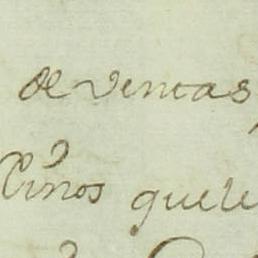 de ventas,
Vinos que le